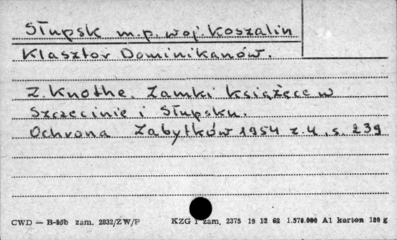 Słupsk m.p. woj. Koszalin
Klasztor Dominikanów.
Z. Knothe. Zamki książęce w
Szczecinie i Słupsku.
Ochrona Zabytków 1954 z.4, s. 239
CWD — B-86b zam. 2832/ZW/P KZG 1 zam. 2375 19 12 62 1.570.000 A1 karton 180 g